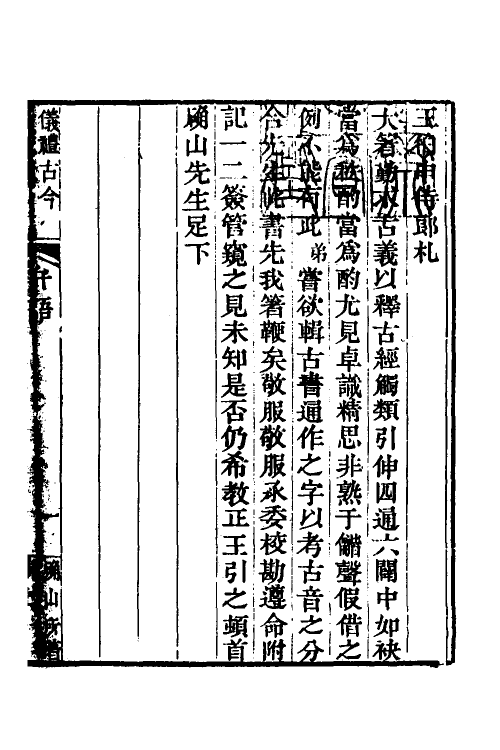 王伯申侍郎札
大著勤求古義以釋古經觸類引伸四通六闢中如袂
當為
酌當為酌尤見卓識精思非熟于龤聲假借之
例不能有此弟嘗欲輯古書通作之字以考古音之分
合先生此書先我箸鞭矣敬服敬服承委校勘遵命附
記一二簽管窺之見未知是否仍希教正王引之頓首
硯山先生足下
儀禮古今